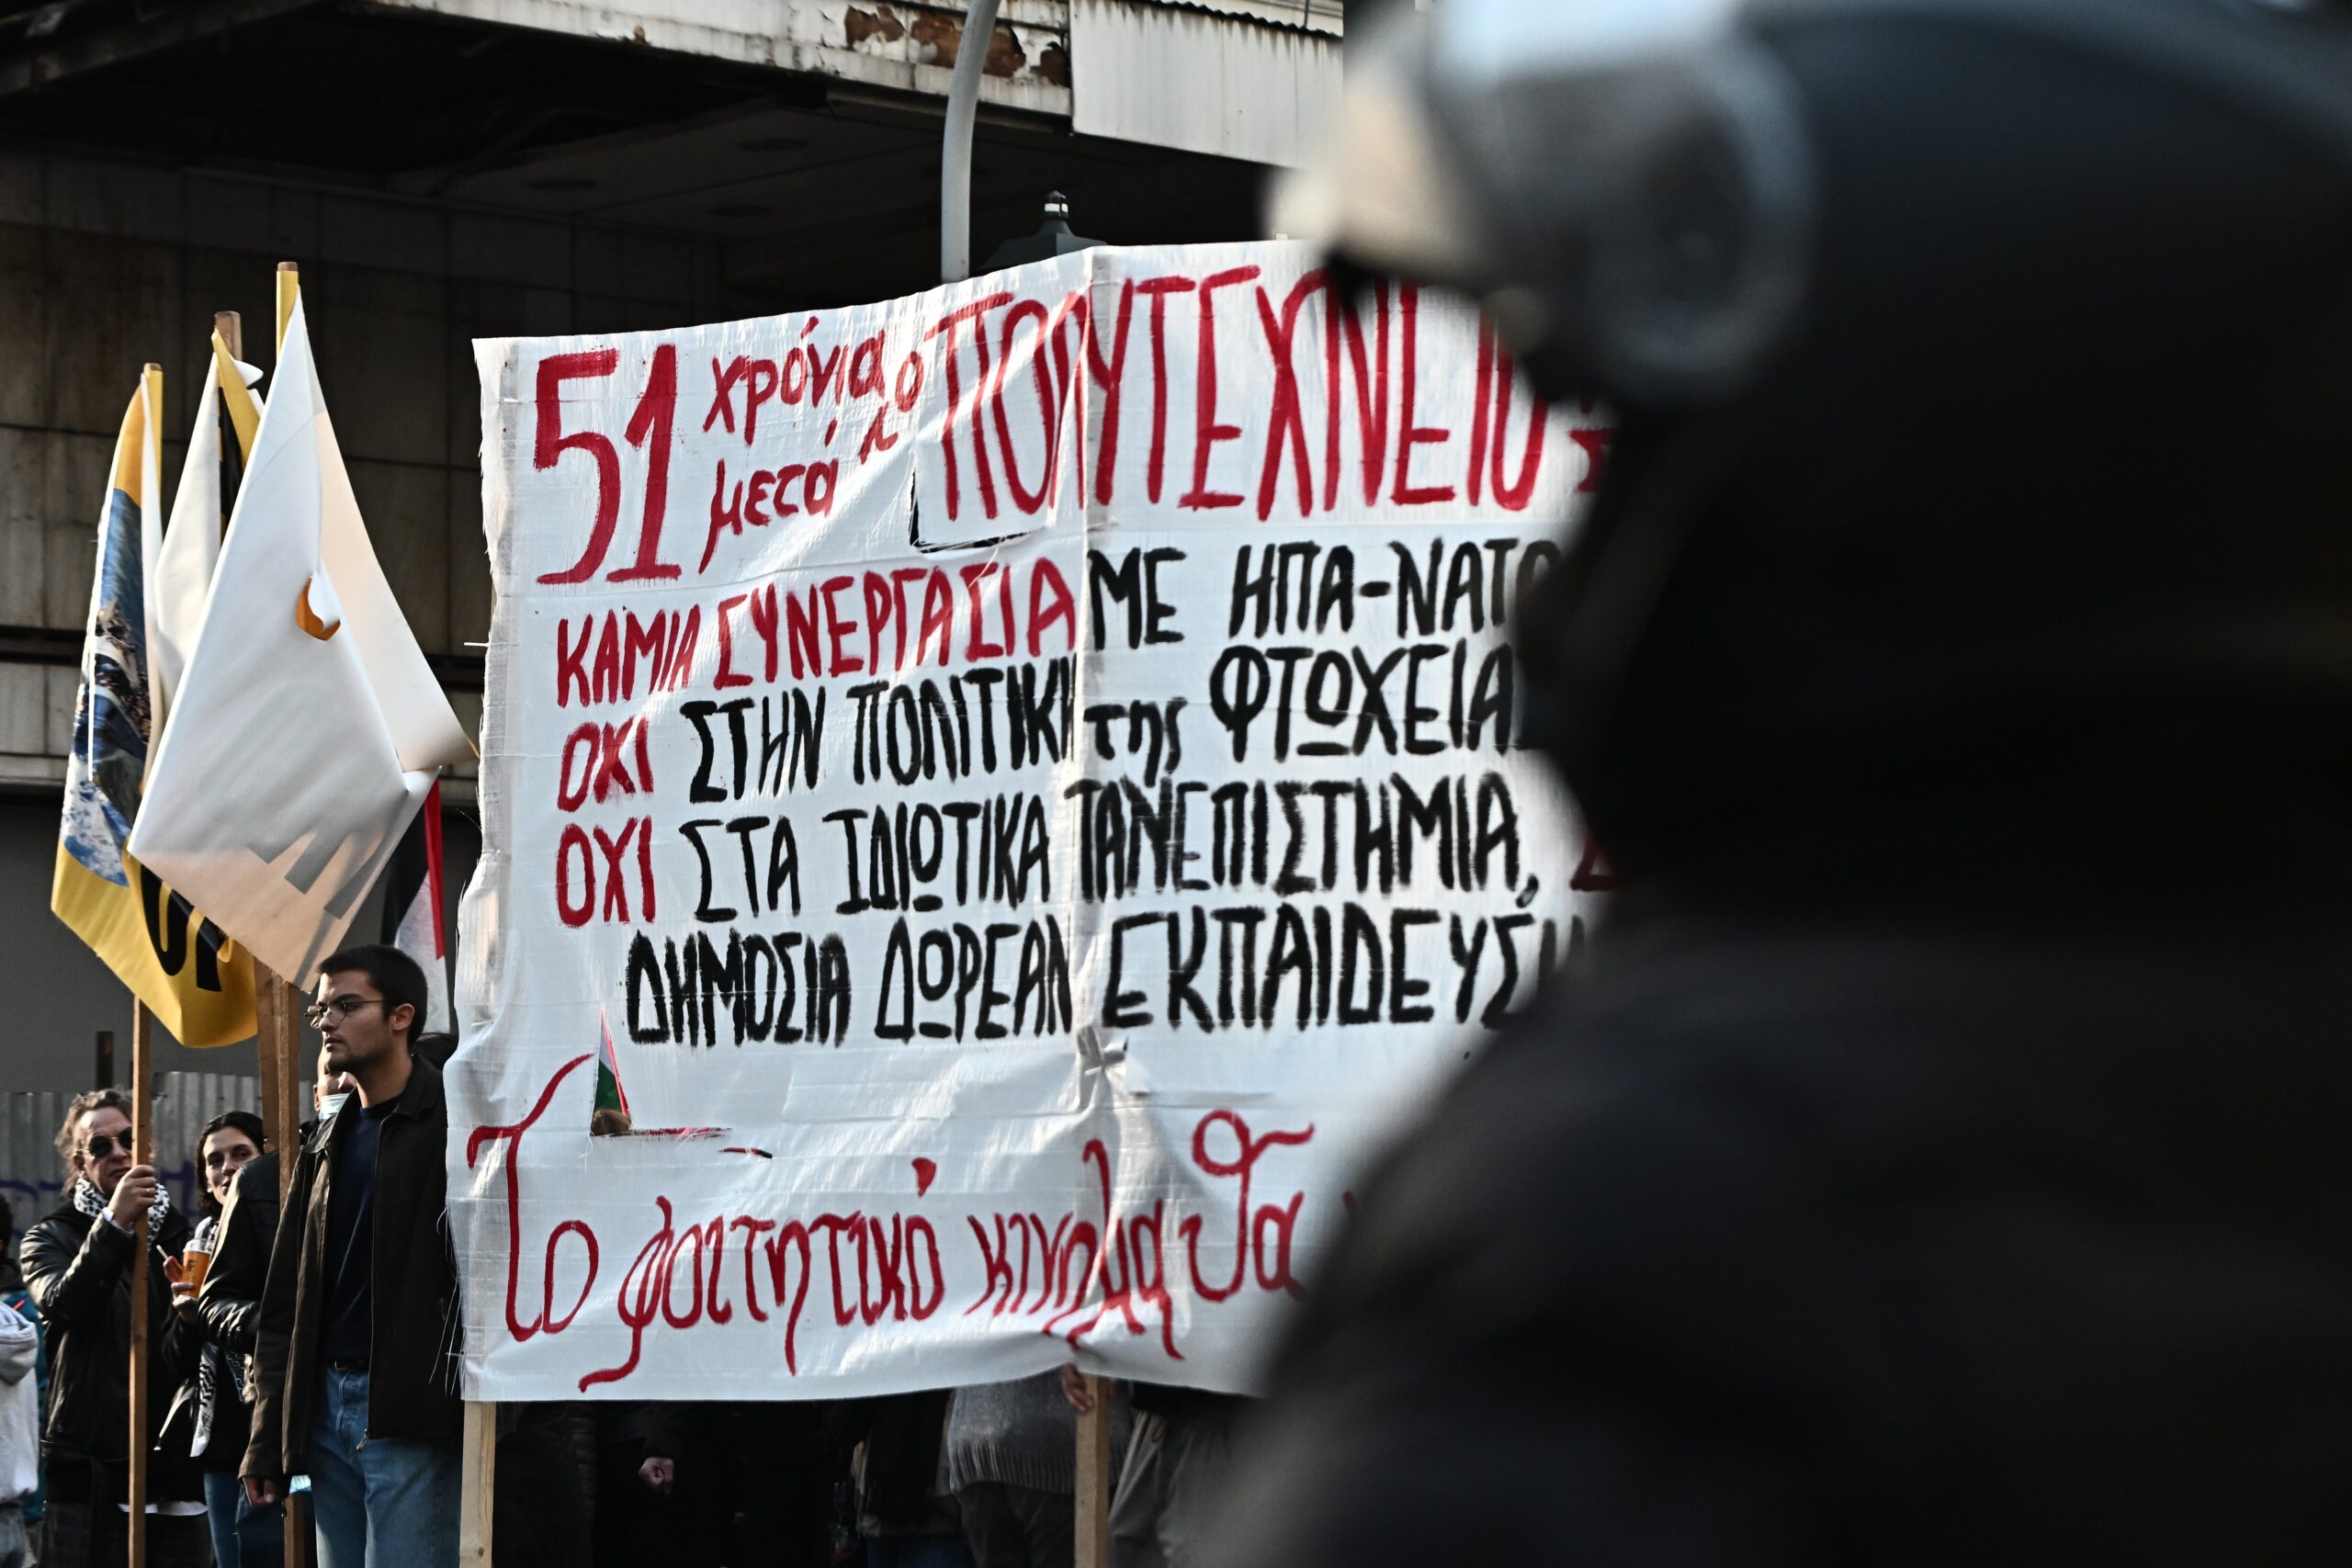 51 χρόνια μετά λ ο ΠΟΛΥΤΕΧΝΕΙΟ
ΚΑΜΙΑ ΣΥΝΕΡΓΑΣΙΑ ΜΕ ΗΠΑ-ΝΑΤΟ
ΟΧΙ ΣΤΗΝ ΠΟΛΙΤΙΚΗ της ΦΤΩΧΕΙΑ
ΟΧΙ ΣΤΑ ΙΔΙΩΤΙΚΑ ΠΑΝΕΠΙΣΤΗΜΙΑ,
ΔΗΜΟΣΙΑ ΔΩΡΕΑΝ ΕΚΠΑΙΔΕΥΣΗ
Το φοιτητικό κίνημα θα